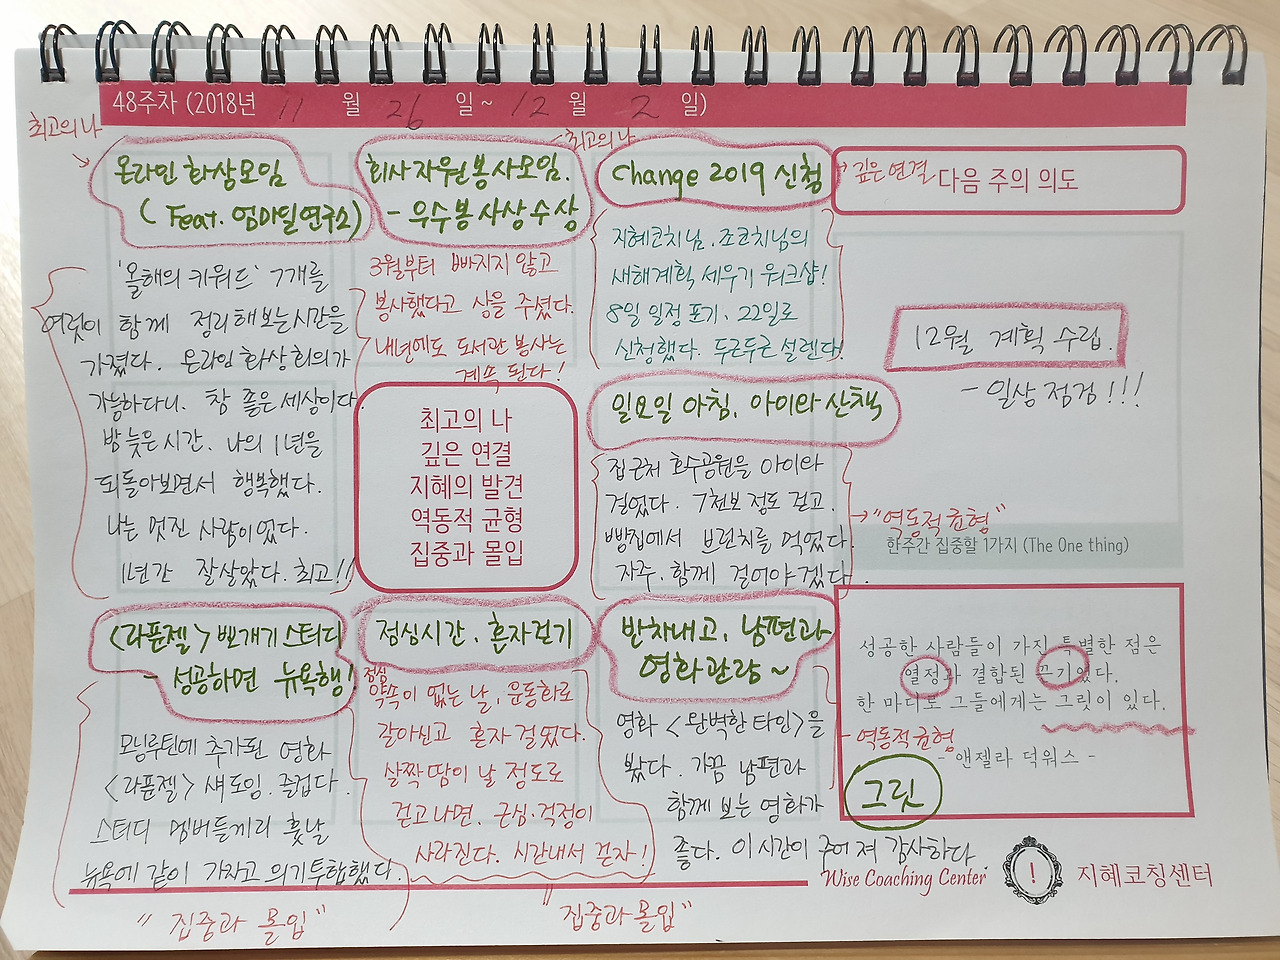 48주차 (2018년 11 월 26 일 ~ 12 월 2 일)
최고의 나
온라인 화상모임
(Feat. 엄마일연구소)
'올해의 키워드' 7개를
여럿이 함께 정리해보는시간을
가졌다. 온라인 화상회의가
가능하다니. 참 좋은 세상이다.
밤 늦은 시간. 나의 1년을
되돌아보면서 행복했다.
나는 멋진 사람이었다.
1년간 잘살았다. 최고!!
최고의 나
회사 자원봉사모임.
- 우수봉사상 수상
3월부터 빠지지 않고
봉사했다고 상을 주셨다.
내년에도 도서관 봉사는
계속 된다!
Change 2019 신청
깊은 연결
지혜코치님. 조코치님의
새해계획 세우기 워크샵!
8일 일정 포기. 22일로
신청했다. 두근두근 설렌다!
다음 주의 의도
12월 계획 수립.
- 일상 점검!!!
최고의 나
깊은 연결
지혜의 발견
역동적 균형
집중과 몰입
일요일 아침, 아이와 산책
집근처 호수공원을 아이와
걸었다. 7천보 정도 걷고,
빵집에서 브런치를 먹었다.
자주. 함께 걸어야겠다.
"역동적 균형"
한주간 집중할 1가지 (The One thing)
<라푼젤> 뽀개기 스터디
- 성공하면 뉴욕행!
모닝루틴에 추가된 영화
<라푼젤> 섀도잉. 즐겁다.
스터디 멤버들끼리 훗날
뉴욕에 같이 가자고 의기투합했다.
"집중과 몰입"
점심시간. 혼자걷기
점심
약속이 없는 날, 운동화로
갈아신고 혼자 걸었다.
살짝 땀이 날 정도로
걷고나면, 근심·걱정이
사라진다. 시간내서 걷자!
"집중과 몰입"
반차내고, 남편과
영화관람~
영화 <완벽한 타인>을
봤다. 가끔 남편과
함께 보는 영화가
좋다. 이 시간이 주어져 감사하다.
역동적 균형
성공한 사람들이 가진 특별한 점은
열정과 결합된 끈기였다.
한 마디로 그들에게는 그릿이 있다.
- 앤젤라 덕워스 -
그릿
Wise Coaching Center
!
지혜코칭센터